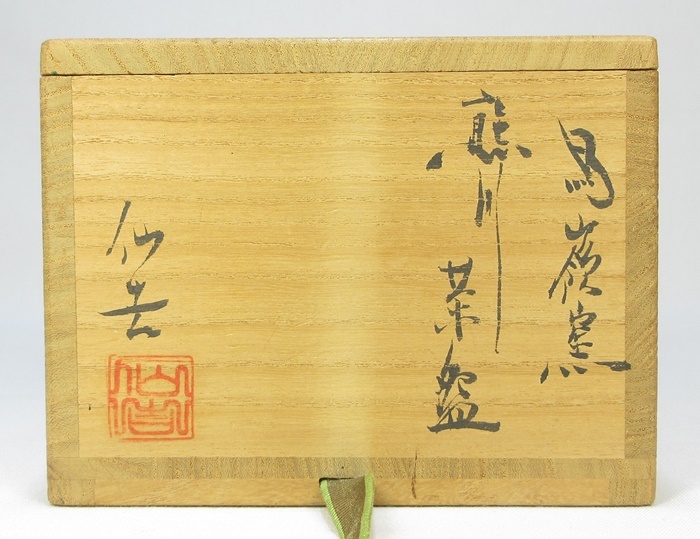 馬嶺窯
熊川茶盌
仙吉